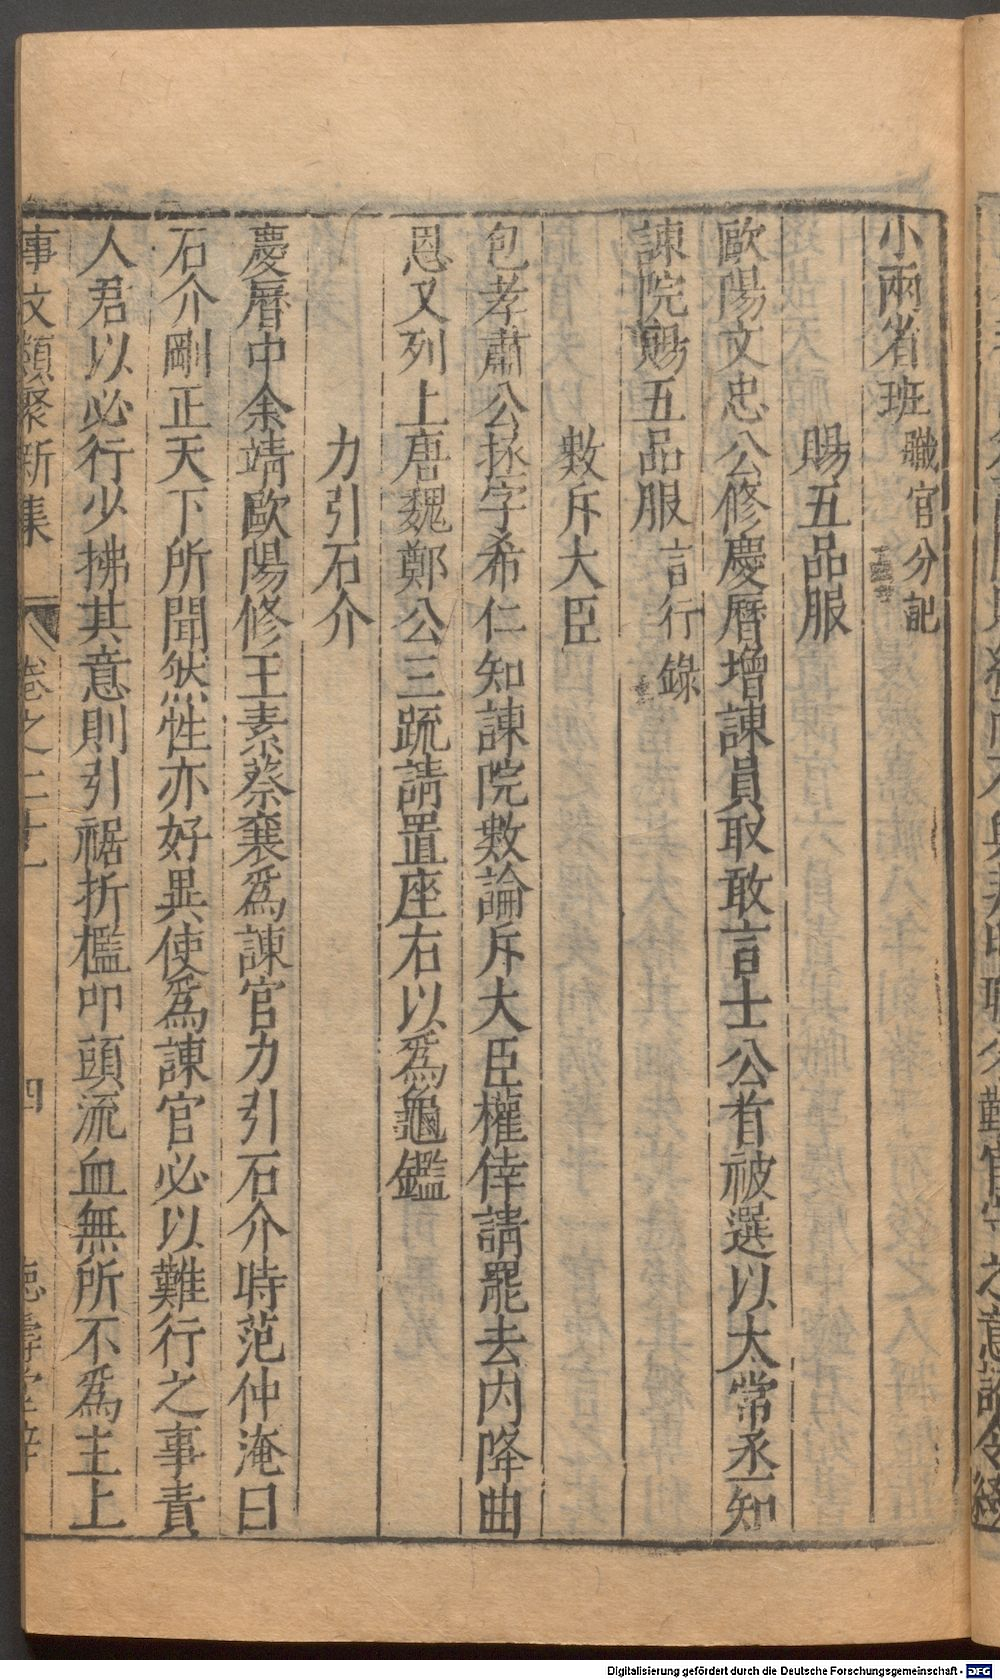 小兩省班職官分記
賜五品服
歐陽文忠公修慶曆增諫員取敢言士公首被選以太常丞知
諫院賜五品服言行錄
數斥大臣
包孝肅公拯字希仁知諫院數論斥大臣權倖請罷去內降曲
恩又列上唐魏鄭公三疏請置座右以爲龜鑑
力引石介
慶曆中余靖歐陽修王素蔡襄爲諫官力引石介時范仲淹曰
石介剛正天下所聞然性亦好異使爲諫官必以難行之事責
人君以必行少拂其意則引裾折檻叩頭流血無所不爲主上
事文類聚新集 卷之二十一 四
Digitalisierung gefördert durch die Deutsche Forschungsgemeinschaft - DFG